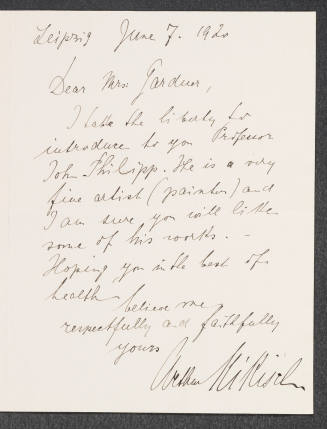 Leipzig June 7. 1920
Dear Mrs. Gardner,
I take the liberty to
introduce to you Professor
John Philipp. He is a very
fine artist (painter) and
I am sure you will like
some of his works. -
Hoping you in the best of
health
believe me
respectfully and faithfully
yours
Arthur Nikisch